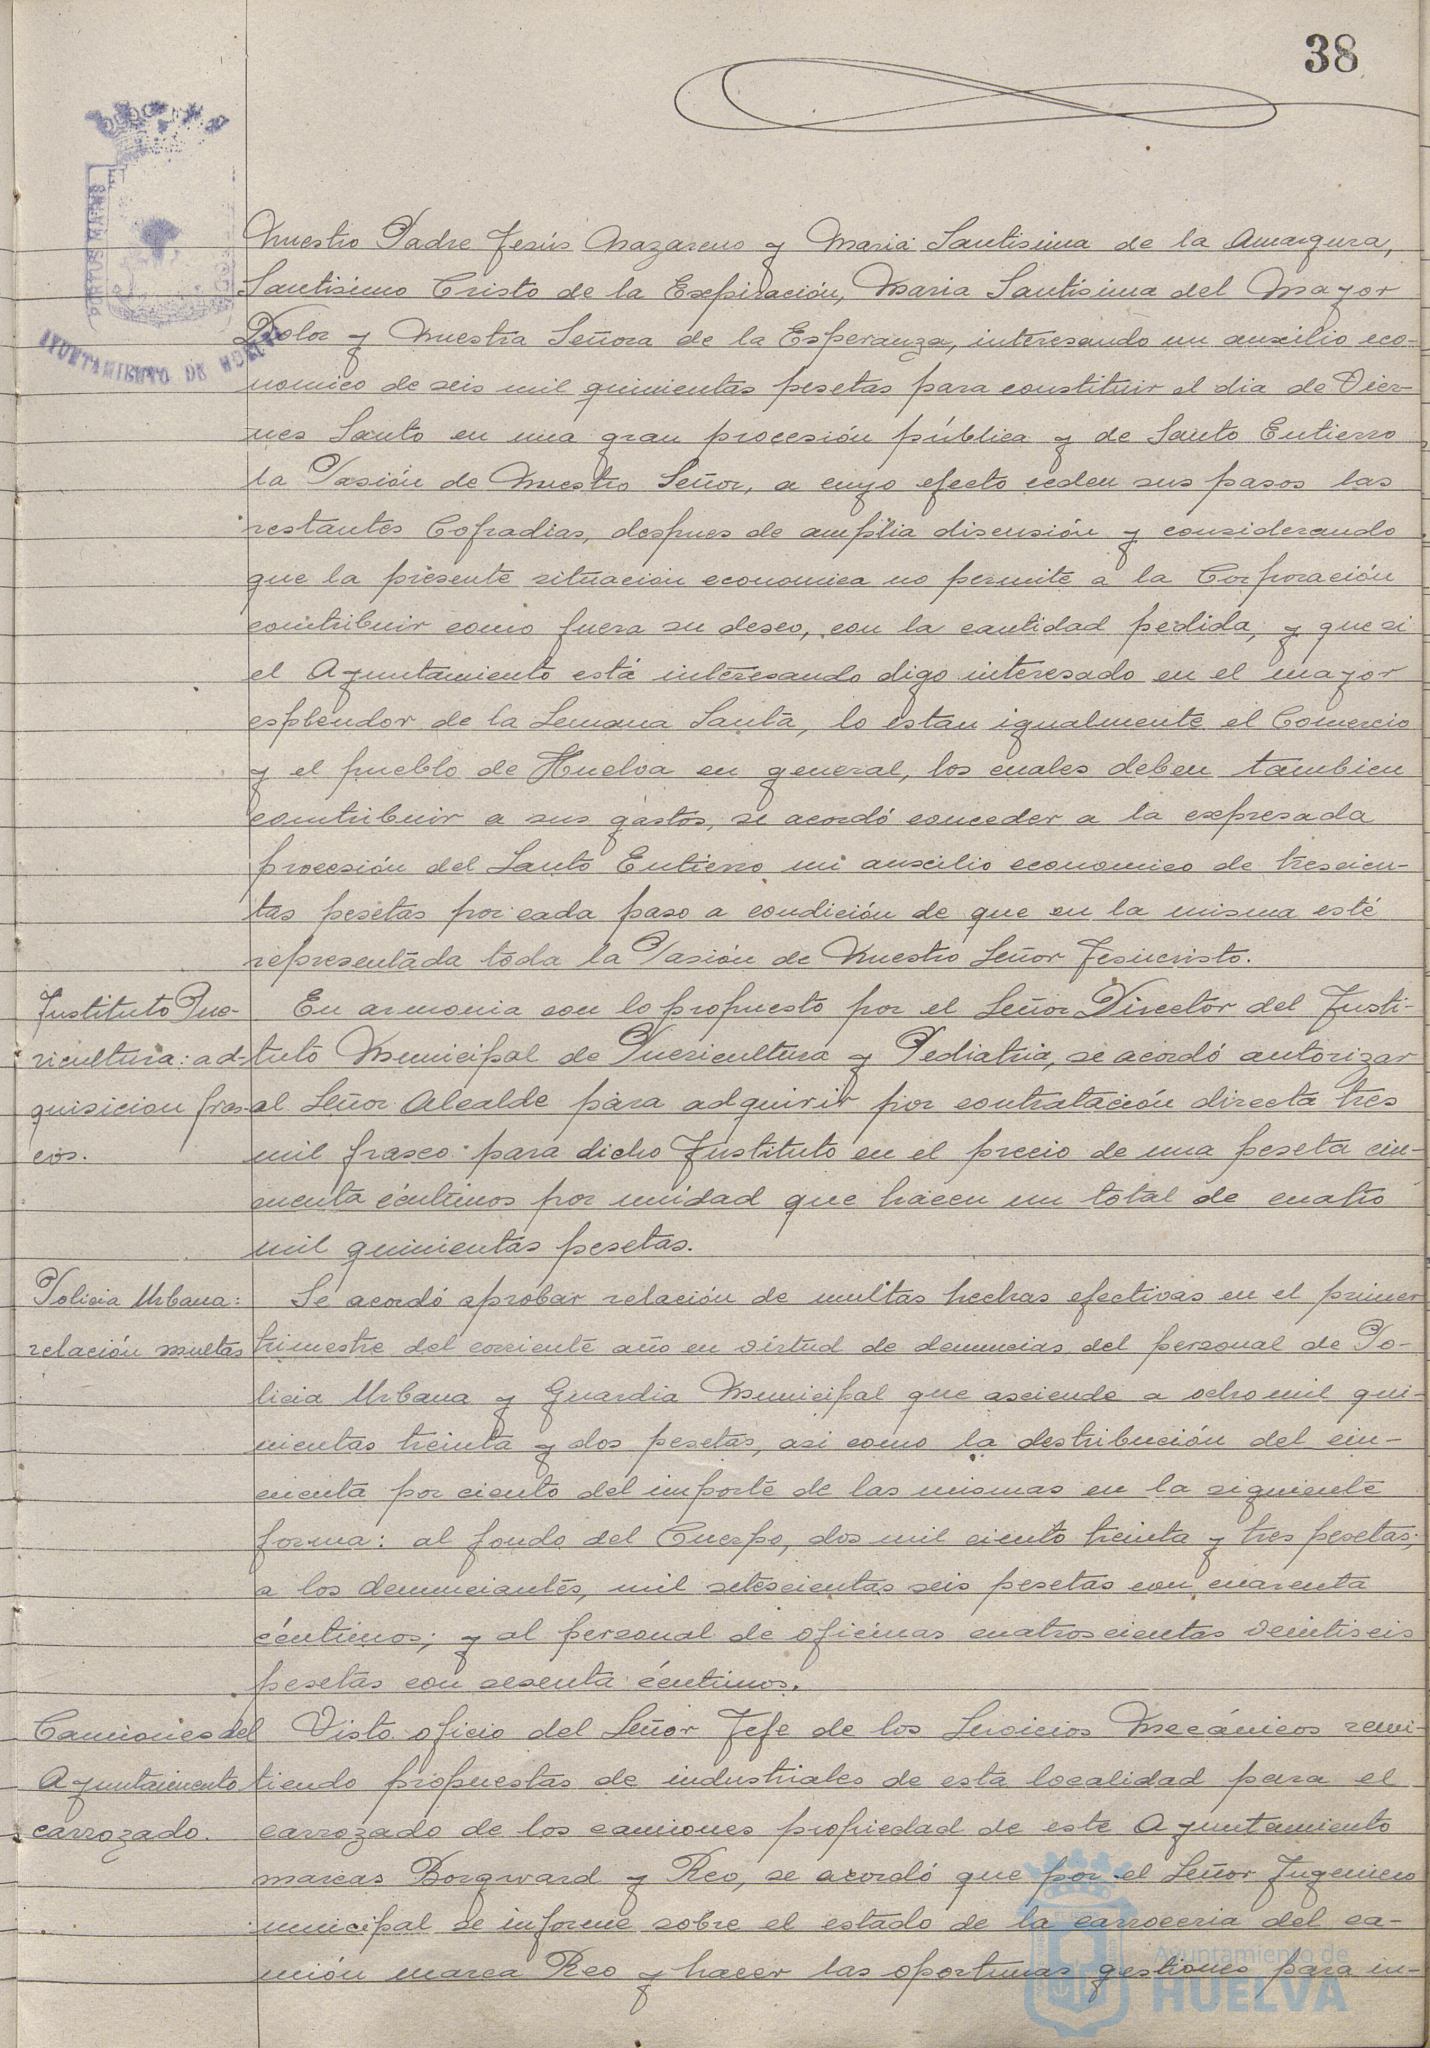 38
PORTUS MARIS ET
AYUNTAMIENTO DE HUELVA
Nuestro Padre Jesús Nazareno y Maria Santisima de la Amargura,
Santisimo Cristo de la Expiración, Maria Santisima del Mayor
Dolor y Nuestra Señora de la Esperanza, interesando un auxilio eco-
nomico de seis mil quinientas pesetas para constituir el dia de Vier-
nes Santo en una gran procesión pública y de Santo Entierro
la Pasión de Nuestro Señor, a cuyo efecto ceden sus pasos las
restantes Cofradias, despues de amplia discusión y considerando
que la presente situacion economica no permite a la Corporación
contribuir como fuera su deseo, con la cantidad perdida, y que si
el Ayuntamiento está interesando digo interesado en el mayor
esplendor de la Semana Santa, lo estan igualmente el Comercio
y el pueblo de Huelva en general, los cuales deben tambien
contribuir a sus gastos, se acordó conceder a la expresada
procesión del Santo Entierro un auxilio economico de trescien-
tas pesetas por cada paso a condición de que en la misma esté
representada toda la Pasión de Nuestro Señor Jesucristo.
Instituto Pue-
ricultura: ad-
quisicion fras-
cos.
En armonia con lo propuesto por el Señor Director del Insti-
tuto Municipal de Puericultura y Pediatria, se acordó autorizar
al Señor Alcalde para adquirir por contratación directa tres
mil frasco para dicho Instituto en el precio de una peseta cin-
cuenta céntimos por unidad que hacen un total de cuatro
mil quinientas pesetas.
Policia Urbana:
relación multas
Se acordó aprobar relación de multas hechas efectivas en el primer
trimestre del corriente año en virtud de denuncias del personal de Po-
licia Urbana y Guardia Municipal que asciende a ocho mil qui-
nientas treinta y dos pesetas, asi como la destribución del cin-
cuenta por ciento del importe de las mismas en la siguiente
forma: al fondo del Cuerpo, dos mil ciento treinta y tres pesetas;
a los denunciantes, mil setescientas seis pesetas con cuarenta
céntimos; y al personal de oficinas cuatroscientas veintiseis
pesetas con sesenta céntimos.
Camiones del
Ayuntamiento
carrozado.
Visto oficio del Señor Jefe de los Servicios Mecánicos remi-
tiendo propuestas de industriales de esta localidad para el
carrozado de los camiones propiedad de este Ayuntamiento
marcas Borgward y Reo, se acordó que por el Señor Ingeniero
municipal se informe sobre el estado de la carroceria del ca-
mión marca Reo y hacer las oportunas gestiones para in-
Ayuntamiento de
HUELVA